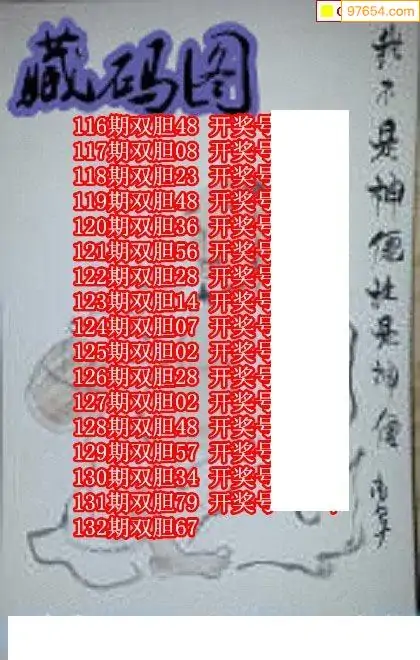 97654.com
藏码图
116期双胆48 开奖号
117期双胆08 开奖号
118期双胆23 开奖号
119期双胆48 开奖号
120期双胆36 开奖号
121期双胆56 开奖号
122期双胆28 开奖号
123期双胆14 开奖号
124期双胆07 开奖号
125期双胆02 开奖号
126期双胆28 开奖号
127期双胆02 开奖号
128期双胆48 开奖号
129期双胆57 开奖号
130期双胆34 开奖号
131期双胆79 开奖号
132期双胆67
我不是神但社是神僵